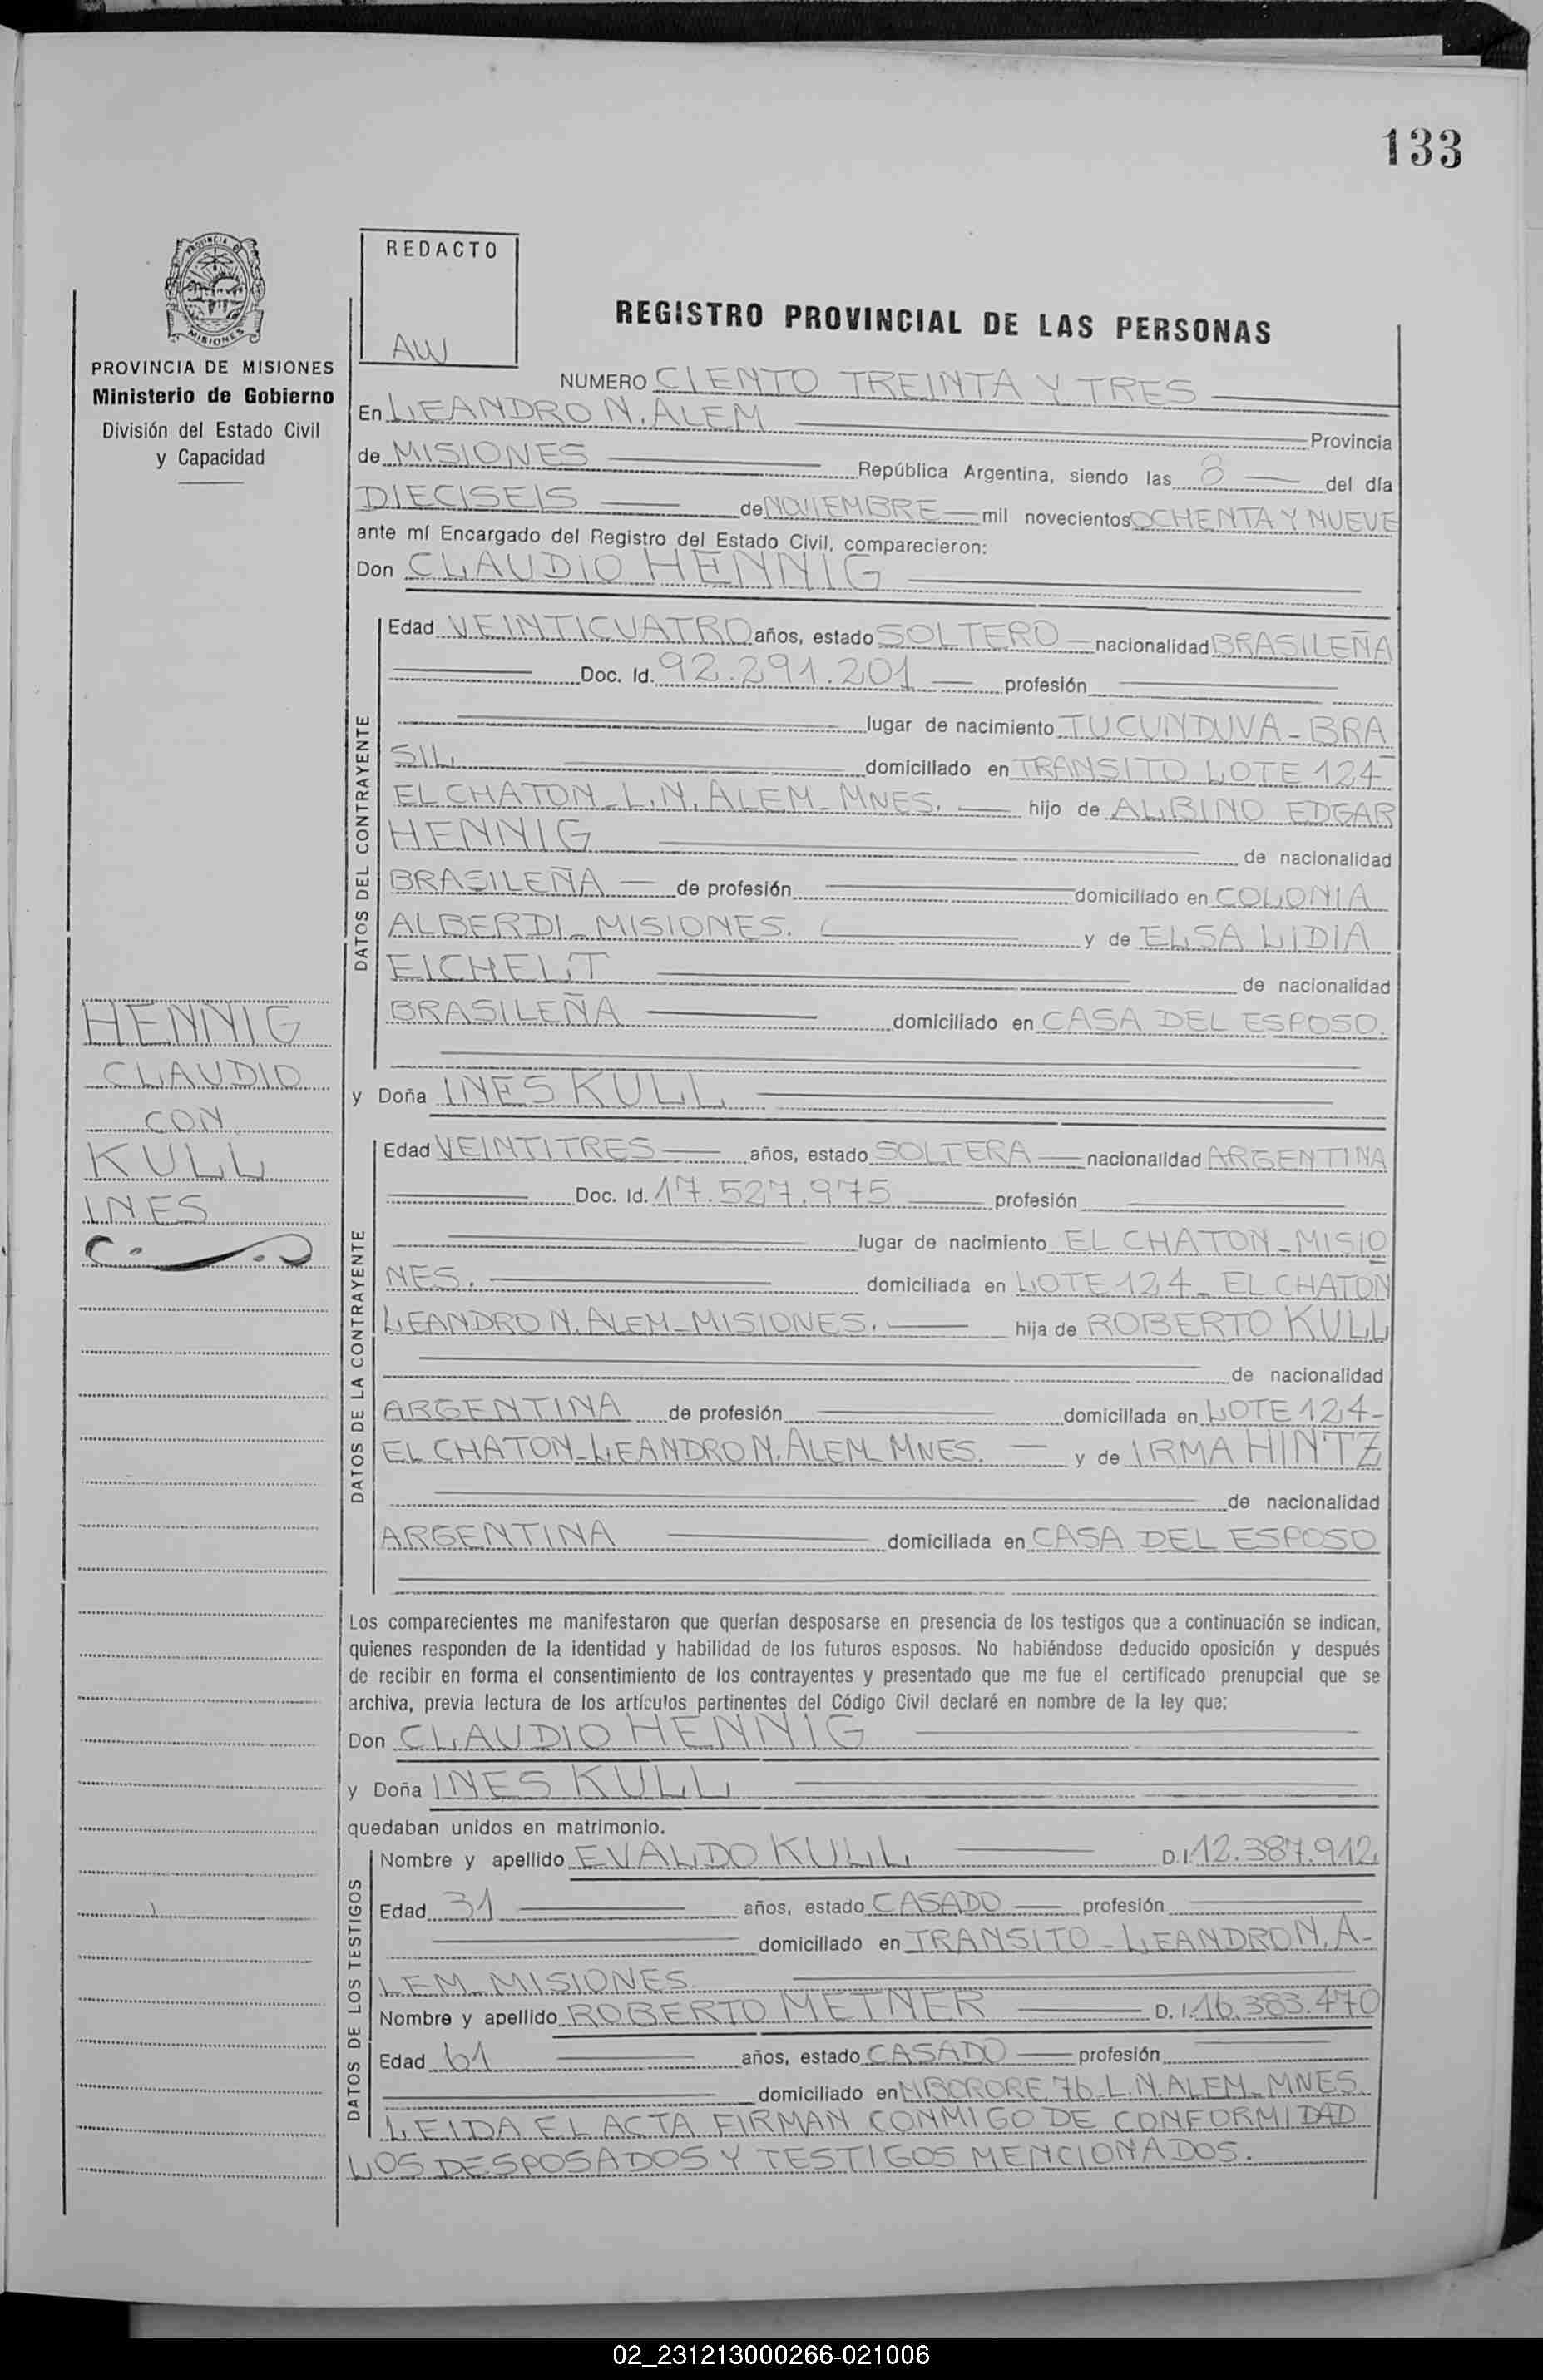 133
REDACTO
AW
PROVINCIA DE MISIONES
Ministerio de Gobierno
División del Estado Civil
y Capacidad
REGISTRO PROVINCIAL DE LAS PERSONAS
NUMERO CIENTO TREINTA Y TRES
En LEANDRO N. ALEM Provincia
de MISIONES República Argentina, siendo las 8 del día
DIECISEIS de NOVIEMBRE mil novecientos OCHENTA Y NUEVE
ante mí Encargado del Registro del Estado Civil, comparecieron:
Don CLAUDIO HENNIG
DATOS DEL CONTRAYENTE
Edad VEINTICUATRO años, estado SOLTERO nacionalidad BRASILEÑA
Doc. Id. 92.291.201 profesión
lugar de nacimiento TUCUNDUVA - BRA
SIL domiciliado en TRANSITO LOTE 124
EL CHATON - L.N. ALEM - MNES. hijo de ALBINO EDGAR
HENNIG de nacionalidad
BRASILEÑA de profesión domiciliado en COLONIA
ALBERDI - MISIONES. y de ELSA LIDIA
EICHELT de nacionalidad
BRASILEÑA domiciliado en CASA DEL ESPOSO.
HENNIG
CLAUDIO
CON
KULL
INES
y Doña INES KULL
DATOS DE LA CONTRAYENTE
Edad VEINTITRES años, estado SOLTERA nacionalidad ARGENTINA
Doc. Id. 17.527.975 profesión
lugar de nacimiento EL CHATON - MISIO
NES. domiciliada en LOTE 124 - EL CHATON
LEANDRO N. ALEM - MISIONES. hija de ROBERTO KULL
de nacionalidad
ARGENTINA de profesión domiciliada en LOTE 124 -
EL CHATON - LEANDRO N. ALEM MNES. y de IRMA HINTZ
de nacionalidad
ARGENTINA domiciliada en CASA DEL ESPOSO
Los comparecientes me manifestaron que querían desposarse en presencia de los testigos que a continuación se indican,
quienes responden de la identidad y habilidad de los futuros esposos. No habiéndose deducido oposición y después
de recibir en forma el consentimiento de los contrayentes y presentado que me fue el certificado prenupcial que se
archiva, previa lectura de los artículos pertinentes del Código Civil declaré en nombre de la ley que;
Don CLAUDIO HENNIG
y Doña INES KULL
quedaban unidos en matrimonio.
DATOS DE LOS TESTIGOS
Nombre y apellido EVALDO KULL D.I. 12.387.912
Edad 31 años, estado CASADO profesión
domiciliado en TRANSITO - LEANDRO N. A-
LEM - MISIONES
Nombre y apellido ROBERTO METNER D. I. 16.383.470
Edad 61 años, estado CASADO profesión
domiciliado en MBORORE 76 - L.N. ALEM - MNES
LEIDA EL ACTA FIRMAN CONMIGO DE CONFORMIDAD
LOS DESPOSADOS Y TESTIGOS MENCIONADOS.
02_231213000266-021006